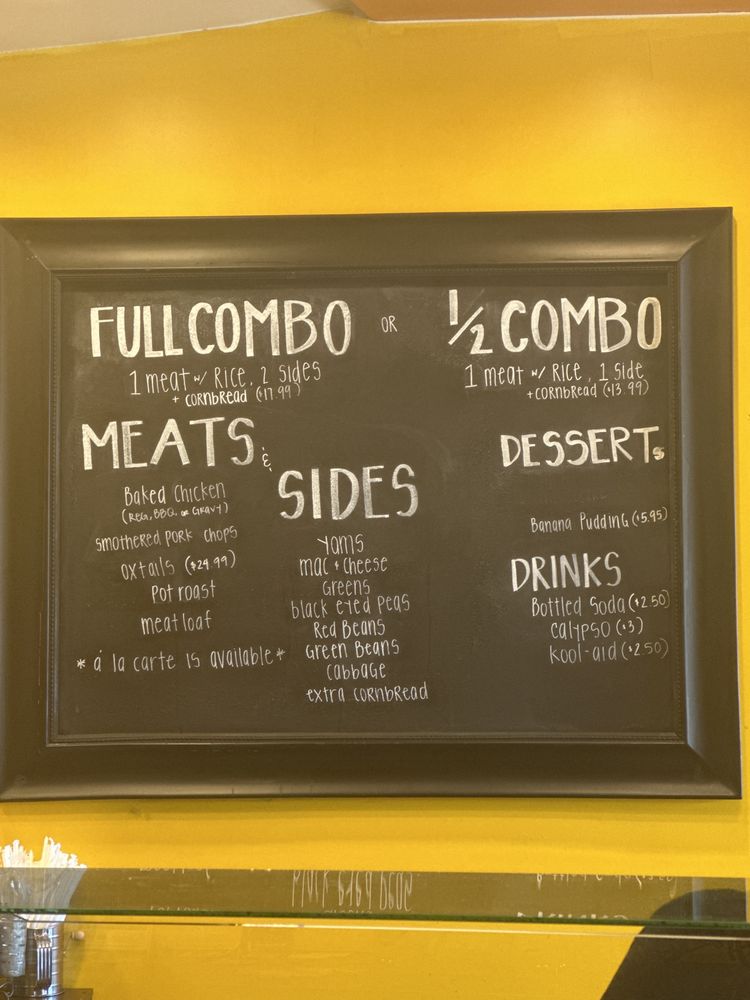 FULL COMBO OR 1/2 COMBO
1 meat w/ Rice, 2 sides
+ cornbread ($17.99)
1 meat w/ Rice, 1 side
+ cornbread ($13.99)
MEATS &
Baked Chicken
(REG, BBQ, or GRAVY)
smothered pork chops
oxtails ($24.99)
pot roast
meatloaf
* á la carte is available *
SIDES
yams
mac + cheese
Greens
black eyed peas
Red Beans
Green Beans
cabbage
extra cornbread
DESSERTs
Banana Pudding ($5.95)
DRINKS
Bottled Soda ($2.50)
calypso ($3)
kool-aid ($2.50)